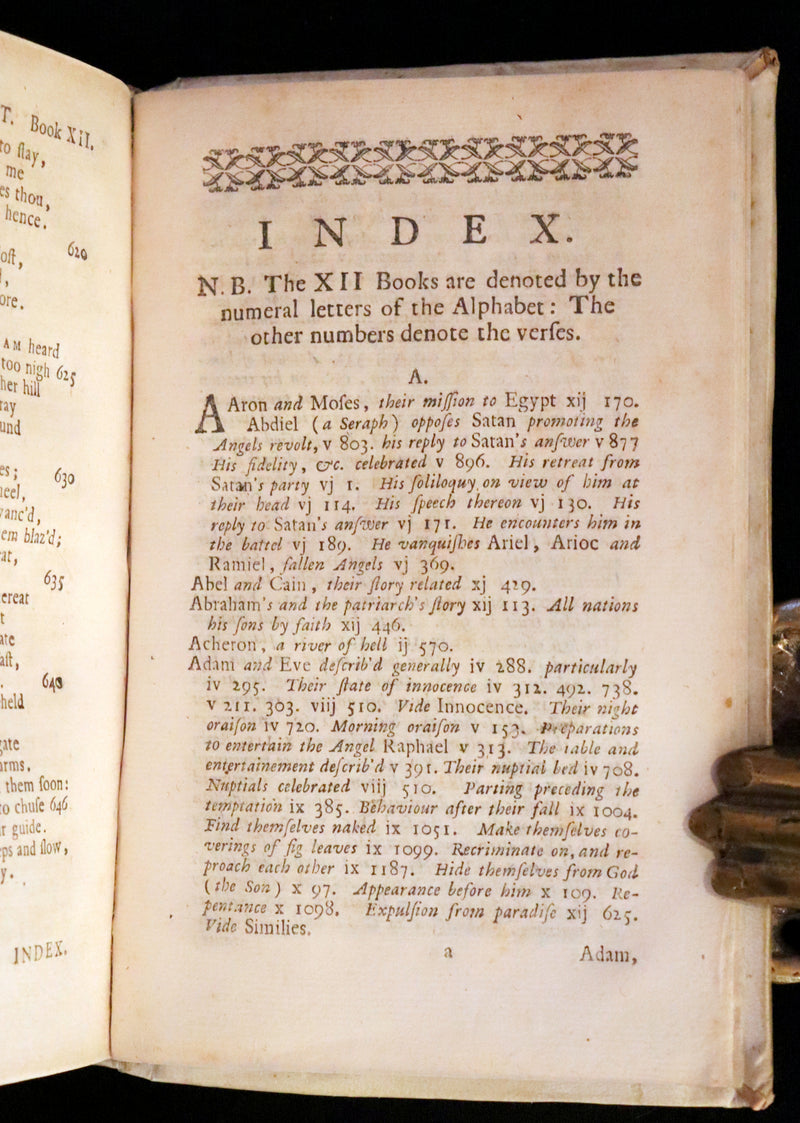 T. Book XII.
to ſlay,
me
es thou,
hence.
oſt, 620
ore.
AM heard
too nigh 625
her hill
ray
und
es; 630
eel,
anc'd,
em blaz'd;
at,
635
ereat
t
ate
aſt,
640
held
gate
arms.
them ſoon:
to chuſe 646
r guide.
ps and ſlow,
y.
INDEX.
INDEX.
N. B. The XII Books are denoted by the
numeral letters of the Alphabet: The
other numbers denote the verſes.
A.
AAron and Moſes, their miſſion to Egypt xij 170.
Abdiel (a Seraph) oppoſes Satan promoting the
Angels revolt, v 803. his reply to Satan's anſwer v 877
His fidelity, &c. celebrated v 896. His retreat from
Satan's party vj 1. His ſoliloquy on view of him at
their head vj 114. His ſpeech thereon vj 130. His
reply to Satan's anſwer vj 171. He encounters him in
the battel vj 189. He vanquiſhes Ariel, Arioc and
Ramiel, fallen Angels vj 369.
Abel and Cain, their ſtory related xj 429.
Abraham's and the patriarch's ſtory xij 113. All nations
his ſons by faith xij 446.
Acheron, a river of hell ij 570.
Adam and Eve deſcrib'd generally iv 288. particularly
iv 295. Their ſtate of innocence iv 312. 492. 738.
v 211. 303. viij 510. Vide Innocence. Their night
oraiſon iv 720. Morning oraiſon v 153. Preparations
to entertain the Angel Raphael v 313. The table and
entertainement deſcrib'd v 391. Their nuptial bed iv 708.
Nuptials celebrated viij 510. Parting preceding the
temptation ix 385. Behaviour after their fall ix 1004.
Find themſelves naked ix 1051. Make themſelves co-
verings of fig leaves ix 1099. Recriminate on, and re-
proach each other ix 1187. Hide themſelves from God
(the Son) x 97. Appearance before him x 109. Re-
pentance x 1098. Expulſion from paradiſe xij 625.
Vide Similies.
a Adam,